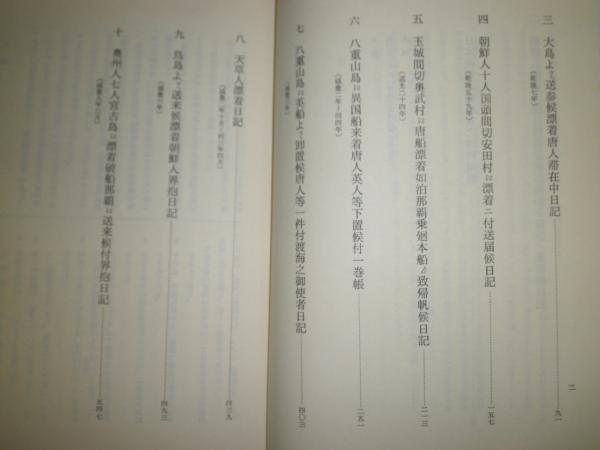 二
三　大島ゟ送参候漂着唐人滞在中日記……九一
（乾隆七年）
四　朝鮮人十人国頭間切安田村江漂着ニ付送届候日記……一五七
（乾隆五十九年）
五　玉城間切奥武村江唐船漂着如泊那覇乗廻本船ニ而致帰帆候日記……二一三
（道光二十四年）
六　八重山島江異国船来着唐人英人等下置候付一巻帳……二五一
（咸豊二年～同四年）
七　八重山島江英船ゟ卸置候唐人等一件付渡海之御使者日記……四〇三
八　天草人漂着日記……四三九
九　鳥島ゟ送来候漂着朝鮮人界抱日記……四九三
十　奥州人七人宮古島江漂着破船那覇江送来候付界抱日記……五四七